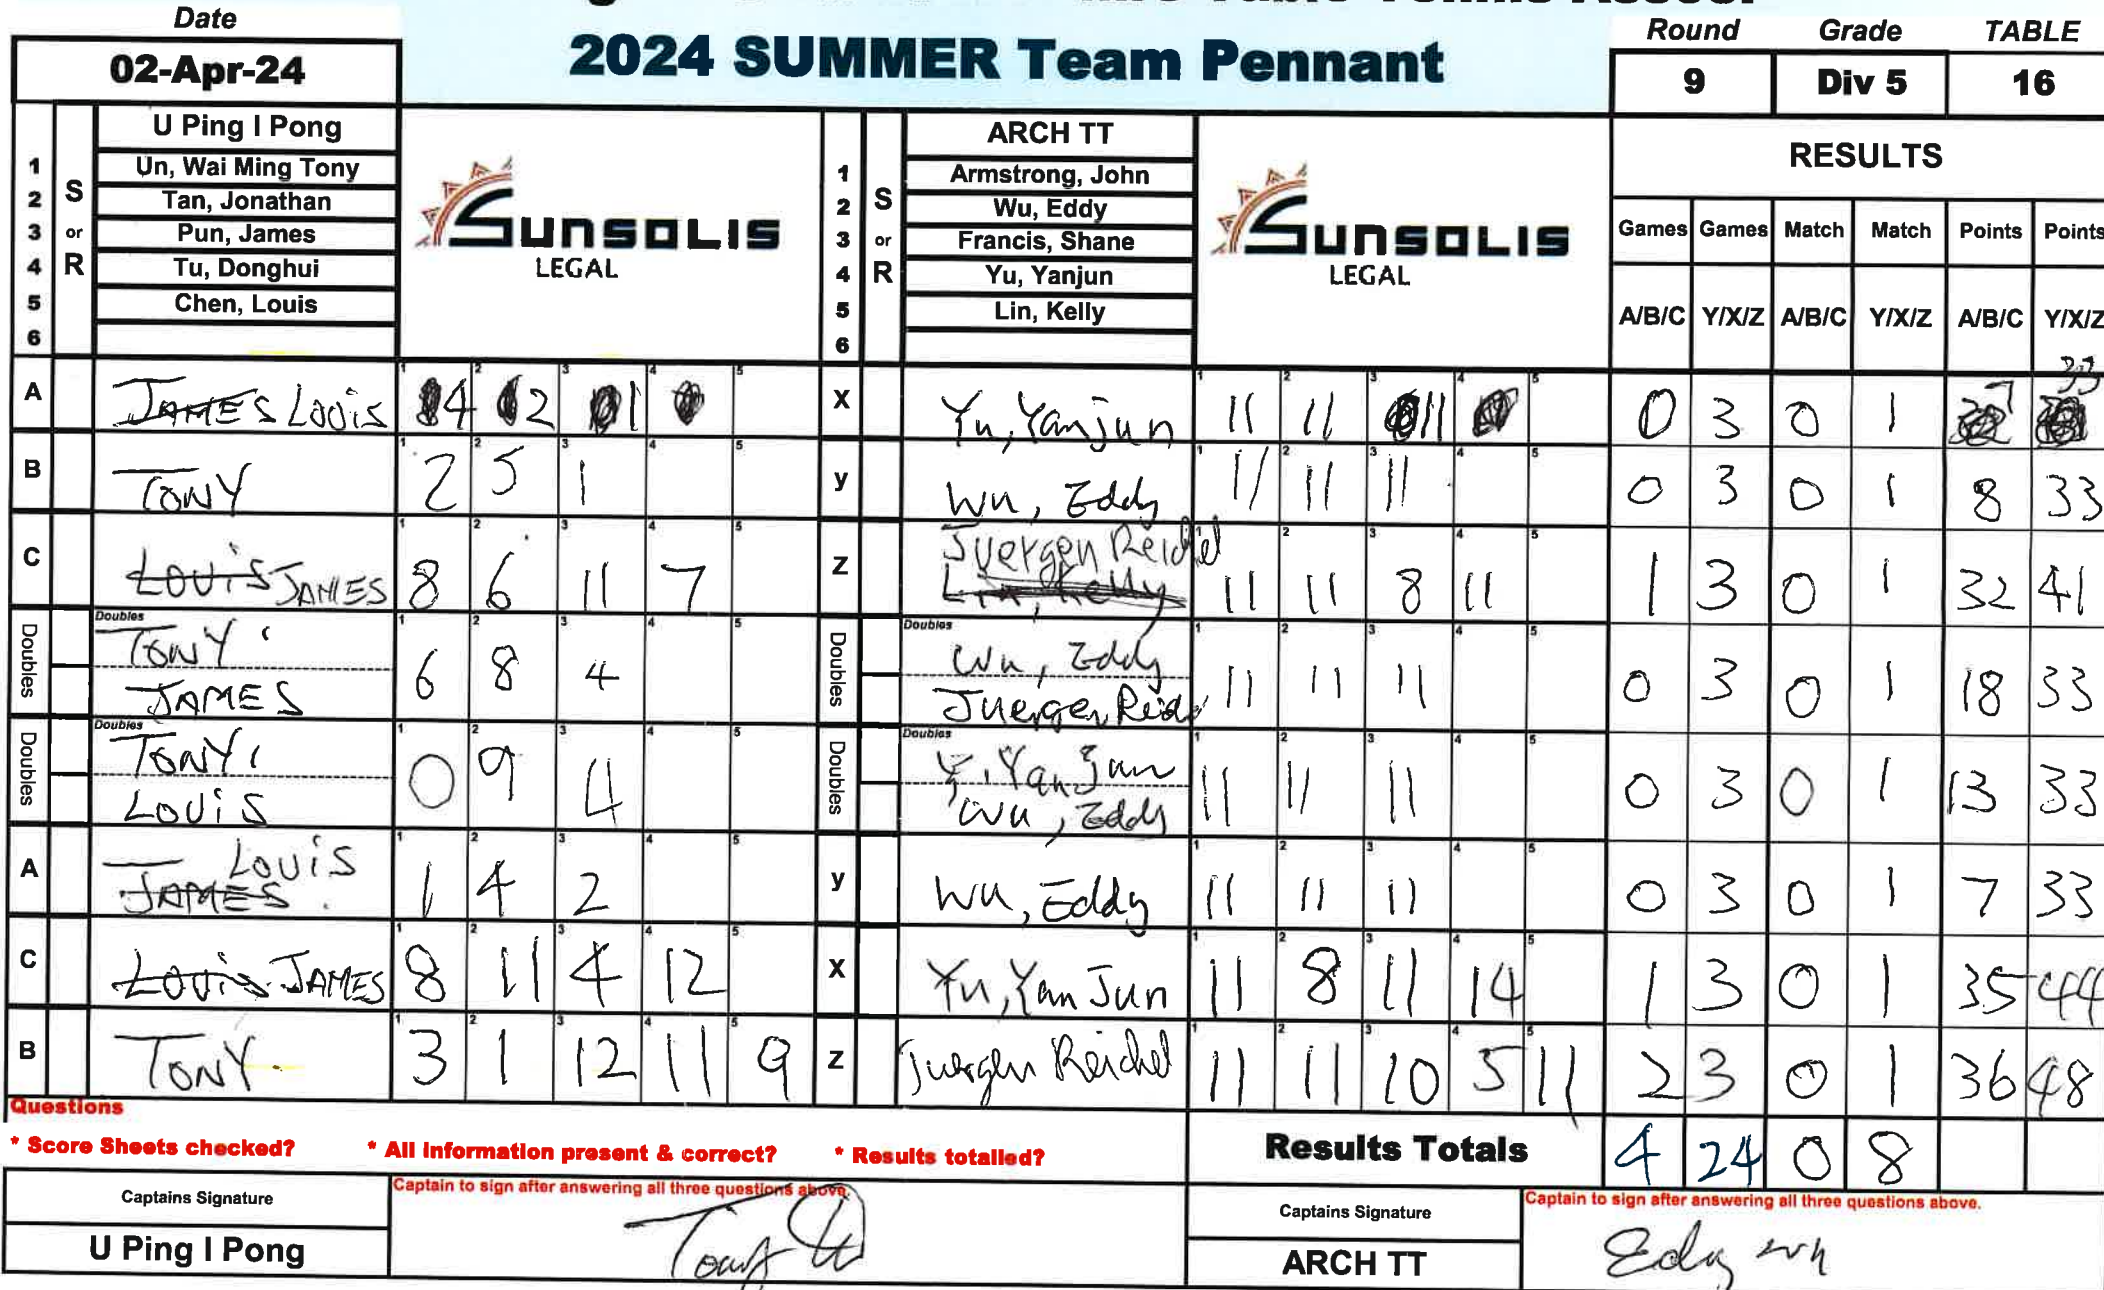 Date
02-Apr-24
Table Tennis Assoc.
2024 SUMMER Team Pennant
Round Grade TABLE
9 Div 5 16
S or R
1 2 3 4 5 6
U Ping I Pong
Un, Wai Ming Tony
Tan, Jonathan
Pun, James
Tu, Donghui
Chen, Louis
SUNSOLIS
LEGAL
S or R
1 2 3 4 5 6
ARCH TT
Armstrong, John
Wu, Eddy
Francis, Shane
Yu, Yanjun
Lin, Kelly
SUNSOLIS
LEGAL
RESULTS
Games Games Match Match Points Points
A/B/C Y/X/Z A/B/C Y/X/Z A/B/C Y/X/Z
A JAMES LOUIS 4 2 1 X Yu, Yanjun 11 11 11 0 3 0 1 7 33
B TONY 2 5 1 y Wu, Eddy 11 11 11 0 3 0 1 8 33
C LOUIS JAMES 8 6 11 7 Z Juergen Reichel Lin, Kelly 11 11 8 11 1 3 0 1 32 41
Doubles TONY JAMES 6 8 4 Doubles Wu, Eddy Juergen 11 11 11 0 3 0 1 18 33
Doubles TONY LOUIS 0 9 4 Doubles Y, YanJun Wu, Eddy 11 11 11 0 3 0 1 13 33
A LOUIS JAMES 1 4 2 y Wu, Eddy 11 11 11 0 3 0 1 7 33
C LOUIS JAMES 8 11 4 12 X Yu, Yan Jun 11 8 11 14 1 3 0 1 35 44
B TONY 3 1 12 11 9 Z Juergen Reichel 11 11 10 5 11 2 3 0 1 36 48
Questions
* Score Sheets checked? * All information present & correct? * Results totalled?
Results Totals 4 24 0 8
Captains Signature
Captain to sign after answering all three questions above.
U Ping I Pong
Tony
Captains Signature
Captain to sign after answering all three questions above.
ARCH TT
Eddy Wu